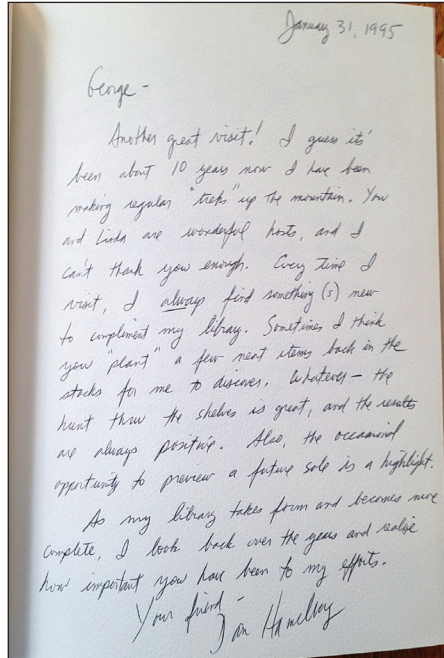 January 31, 1995
George -
Another great visit! I guess it's
been about 10 years now I have been
making regular "treks" up the mountain. You
and Linda are wonderful hosts, and I
can't thank you enough. Every time I
visit, I always find something(s) new
to compliment my library. Sometimes I think
you "plant" a few neat items back in the
stacks for me to discover. Whatever - the
hunt thru the shelves is great, and the results
are always positive. Also, the occasional
opportunity to preview a future sale is a highlight.
As my library takes form and becomes more
complete, I look back over the years and realize
how important you have been to my efforts.
Your friend -